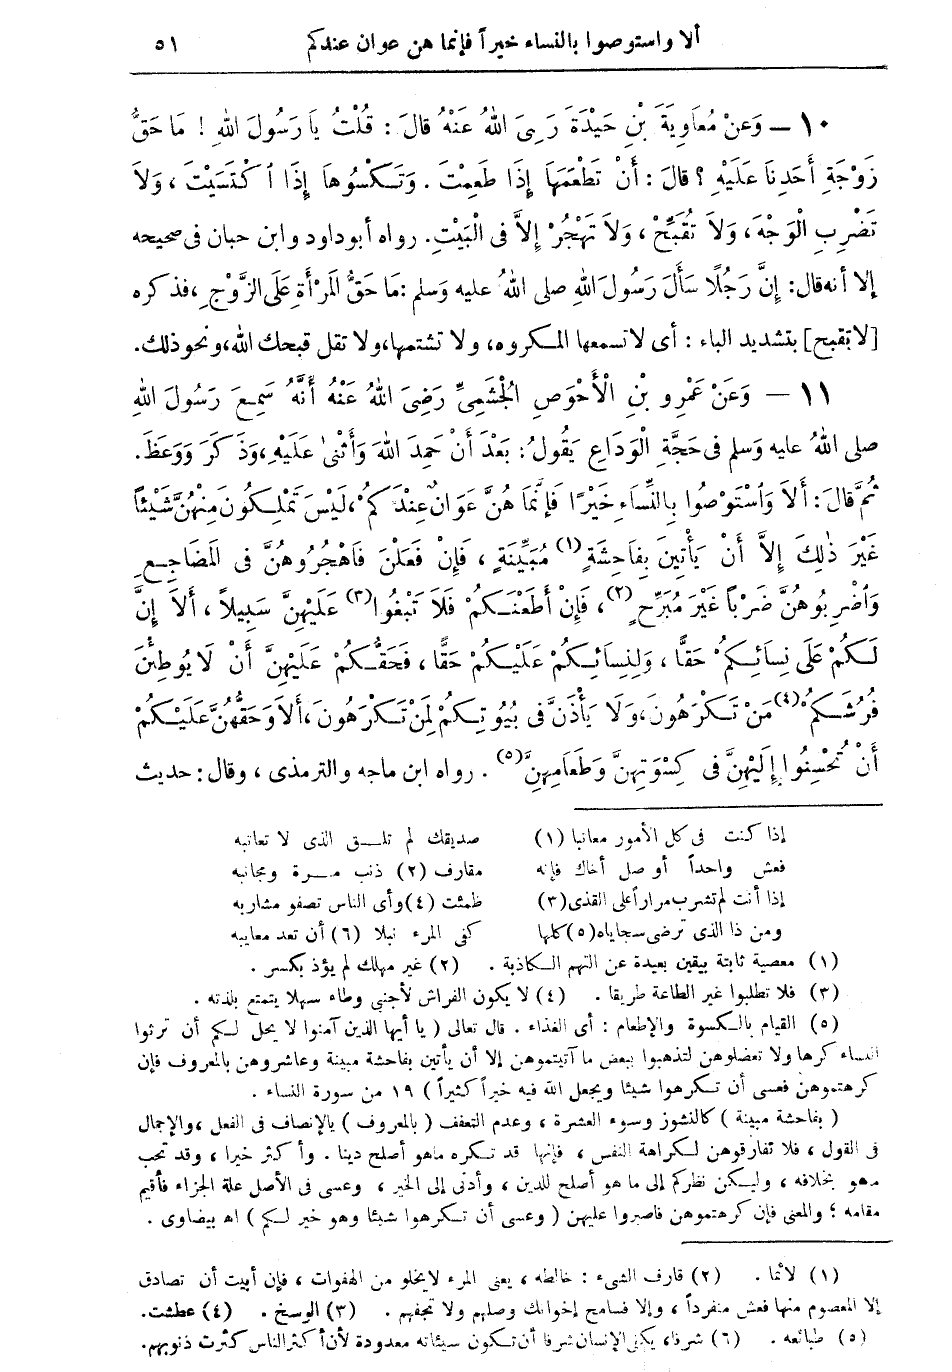 ألا واستوصوا بالنساء خيراً فإنما هن عوان عندكم ٥١
١٠ — وَعَنْ مُعَاوِيَةَ بْنِ حَيْدَةَ رَضِىَ اللهُ عَنْهُ قالَ : قُلْتُ يَا رَسُولَ اللهِ ! مَا حَقُّ
زَوْجَةِ أَحَدِنَا عَلَيْهِ ؟ قالَ : أَنْ تُطْعِمَهَا إِذَا طَعِمْتَ . وَتَكْسُوهَا إِذَا اكْتَسَيْتَ ، وَلَا
تَضْرِبِ الْوَجْهَ ، وَلَا تُقَبِّحْ ، وَلَا تَهْجُرْ إِلاَّ فى الْبَيْتِ . رواه أبو داود وابن حبان فى صحيحه
إلا أنه قال : إِنَّ رَجُلًا سَأَلَ رَسُولَ اللهِ صلى اللهُ عليه وَسلم : مَا حَقُّ الْمَرْأَةِ عَلَى الزَّوْجِ ، فذكره
[لا تقبح] بتشديد الباء : أى لا تسمعها المكروه، ولا تشتمها، ولا تقل قبحك الله، ونحو ذلك.
١١ — وَعَنْ عَمْرِو بْنِ الْأَحْوَصِ الْجُشَمِىِّ رَضِىَ اللهُ عَنْهُ أَنَّهُ سَمِعَ رَسُولَ اللهِ
صلى اللهُ عليه وَسلم فى حَجَّةِ الْوَدَاعِ يَقُولُ : بَعْدَ أَنْ حَمِدَ اللهَ وَأَثْنَىٰ عَلَيْهِ، وَذَكَرَ وَوَعَظَ.
ثُمَّ قالَ : أَلاَ وَاسْتَوْصُوا بِالنِّسَاءِ خَيْرًا فَإِنَّمَا هُنَّ عَوَانٌ عِنْدَكُمْ ، لَيْسَ تَمْلِكُونَ مِنْهُنَّ شَيْئاً
غَيْرَ ذٰلِكَ إِلاَّ أَنْ يَأْتِينَ بِفَاحِشَةٍ (١) مُبَيِّنَةٍ ، فَإِنْ فَعَلْنَ فَاهْجُرُوهُنَّ فى الْمَضَاجِعِ
وَاضْرِبُوهُنَّ ضَرْباً غَيْرَ مُبَرِّحٍ (٢) ، فَإِنْ أَطَعْنَكُمْ فَلَا تَبْغُوا (٣) عَلَيْهِنَّ سَبِيلاً ، أَلاَ إِنَّ
لَكُمْ عَلَى نِسَائِكُمْ حَقًّا ، وَلِنِسَائِكُمْ عَلَيْكُمْ حَقًّا ، فَحَقُّكُمْ عَلَيْهِنَّ أَنْ لَا يُوطِئْنَ
فُرُشَكُمْ (٤) مَنْ تَكْرَهُونَ، وَلَا يَأْذَنَّ فى بُيُوتِكُمْ لِمَنْ تَكْرَهُونَ، أَلاَ وَحَقُّهُنَّ عَلَيْكُمْ
أَنْ تُحْسِنُوا إِلَيْهِنَّ فى كِسْوَتِهِنَّ وَطَعَامِهِنَّ (٥) . رواه ابن ماجه والترمذى ، وقال : حديث
إذا كنت فى كل الأمور معاتبا (١) صديقك لم تلق الذى لا تعاتبه
فعش واحداً أو صل أخاك فإنه مقارف (٢) ذنب مرة ومجانبه
إذا أنت لم تشرب مراراً على القذى (٣) ظمئت (٤) وأى الناس تصفو مشاربه
ومن ذا الذى ترضى سجاياه (٥) كلها كفى المرء نبلا (٦) أن تعد معايبه
(١) معصية ثابتة بيقين بعيدة عن التهم الكاذبة . (٢) غير مهلك لم يؤذ بكسر .
(٣) فلا تطلبوا غير الطاعة طريقا . (٤) لا يكون الفراش لأجنبى وطاء سهلا يتمتع بلذته .
(٥) القيام بالكسوة والإطعام : أى الغذاء . قال تعالى ( يا أيها الذين آمنوا لا يحل لكم أن ترثوا
النساء كرها ولا تعضلوهن لتذهبوا ببعض ما آتيتموهن إلا أن يأتين بفاحشة مبينة وعاشروهن بالمعروف فإن
كرهتموهن فعسى أن تكرهوا شيئا ويجعل الله فيه خيراً كثيراً ) ١٩ من سورة النساء .
( بفاحشة مبينة ) كالنشوز وسوء العشرة ، وعدم التعفف ( بالمعروف ) بالإنصاف فى الفعل ، والإجمال
فى القول ، فلا تفارقوهن لكراهة النفس ، فإنها قد تكره ماهو أصلح دينا . وأكثر خيرا ، وقد تحب
مهو بخلافه ، وليكن نظركم إلى ما هو أصلح للدين ، وأدنى إلى الخير ، وعسى فى الأصل علة الجزاء فأقيم
مقامه ؛ والمعنى فإن كرهتموهن فاصبروا عليهن ( وعسى أن تكرهوا شيئا وهو خير لكم ) اهـ بيضاوى .
(١) لائما . (٢) قارف الشىء : خالطه ، يعنى المرء لا يخلو من الهفوات ، فإن أبيت أن تصادق
إلا المعصوم منها فعش منفرداً ، وإلا فسامح إخوانك وصلهم ولا تجفهم . (٣) الوسخ . (٤) عطشت.
(٥) طبائعه . (٦) شرفا، يكفى الإنسان شرفا أن تكون سيئاته معدودة لأن أكثر الناس كثرت ذنوبهم.